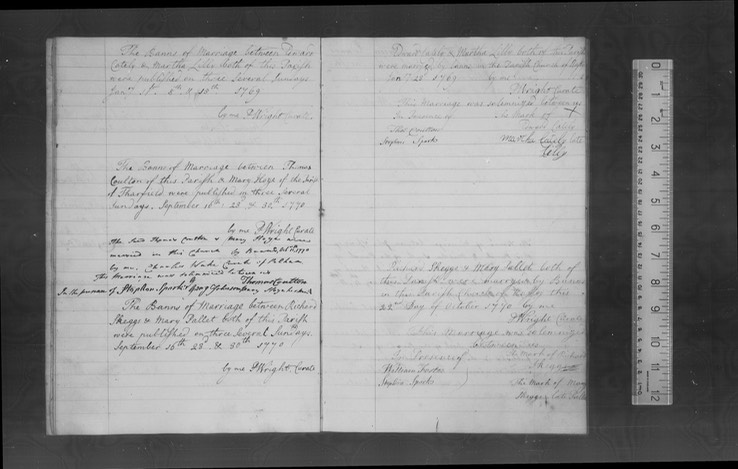 The Banns of Marriage between Edward
Catelo & Martha Lilly both of this Parish
were published on three Several Sundays
Jany 1st 8th & 15th 1769
by me P Wright Curate
The Banns of Marriage between Thomas
Coulton of this Parish & Mary of the Parish
of Tharfield were published on three Several
Sundays, September 16th 23d & 30th 1770
by me P Wright Curate
The said Thomas & Mary were
married in this Church by Banns
by me, Charles Wake of Pelham
This Marriage was solemnized between us
In the presence of Stephen Sparks Thomas Coulton
The Banns of Marriage between Richard
Skeggs & Mary Pallet both of this Parish
were published on three Several Sundays.
September 16th 23d & 30th 1770
by me P Wright Curate
& Martha Lilly both of this Parish
were married by Banns in the Parish Church
1769 by me
P Wright Curate
This Marriage was solemnized between us
In Presence of The Mark of X
Stephen Sparks Martha late
Lilly
Skeggs & Mary Pallet both of
this Parish were married by Banns
in this Parish Church this
22d Day of October 1770 by me
P Wright Curate
This Marriage was solemnized
between us
In Presence of The Mark of Richard
William Foster Skeggs
Stephen Sparks The Mark of Mary
Skeggs late Pallet
0
1
2
3
4
5
6
7
8
9
10
11
12